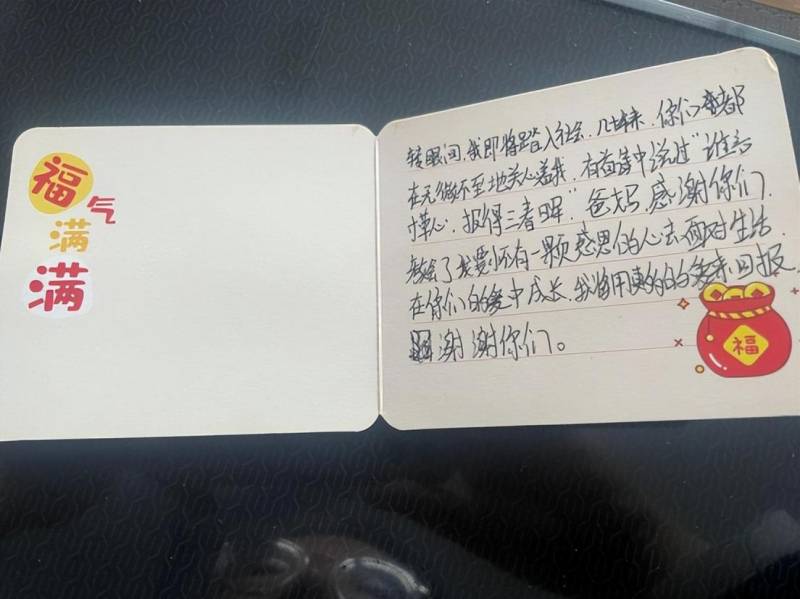 福
气
满
满
转眼间,我即将踏入社会,几十年来,你们都
在无微不至地关心着我,有首诗中说过"谁言
寸草心,报得三春晖"爸妈,感谢你们,
教会了我要怀有一颗感恩的心去面对生活,
在你们的爱中成长,我将用我的爱来回报
谢谢你们。
福